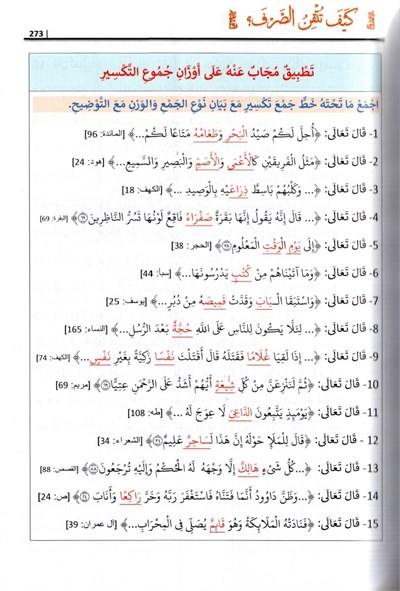 كَيْفَ تُتْقِنُ الصَّرْفَ؟
273
تَطْبِيقٌ مُجَابٌ عَنْهُ عَلَى أَوْزَانِ جُمُوعِ التَّكْسِيرِ
اجْمَعْ مَا تَحْتَهُ خَطٌّ جَمْعَ تَكْسِيرٍ مَعَ بَيَانِ نَوْعِ الجَمْعِ وَالوَزْنِ مَعَ التَّوْضِيحِ.
1- قَالَ تَعَالَى: ﴿أُحِلَّ لَكُمْ صَيْدُ الْبَحْرِ وَطَعَامُهُ مَتَاعًا لَكُمْ...﴾ [المائدة: 96]
2- قَالَ تَعَالَى: ﴿مَثَلُ الْفَرِيقَيْنِ كَالْأَعْمَى وَالْأَصَمِّ وَالْبَصِيرِ وَالسَّمِيعِ...﴾ [هود: 24]
3- قَالَ تَعَالَى: ﴿... وَكَلْبُهُمْ بَاسِطٌ ذِرَاعَيْهِ بِالْوَصِيدِ ...﴾ [الكهف: 18]
4- قَالَ تَعَالَى: ﴿... قَالَ إِنَّهُ يَقُولُ إِنَّهَا بَقَرَةٌ صَفْرَاءُ فَاقِعٌ لَوْنُهَا تَسُرُّ النَّاظِرِينَ﴾ [البقرة: 69]
5- قَالَ تَعَالَى: ﴿إِلَى يَوْمِ الْوَقْتِ الْمَعْلُومِ﴾ [الحجر: 38]
6- قَالَ تَعَالَى: ﴿وَمَا آتَيْنَاهُمْ مِنْ كُتُبٍ يَدْرُسُونَهَا...﴾ [سبأ: 44]
7- قَالَ تَعَالَى: ﴿وَاسْتَبَقَا الْبَابَ وَقَدَّتْ قَمِيصَهُ مِنْ دُبُرٍ...﴾ [يوسف: 25]
8- قَالَ تَعَالَى: ﴿... لِئَلَّا يَكُونَ لِلنَّاسِ عَلَى اللَّهِ حُجَّةٌ بَعْدَ الرُّسُلِ...﴾ [النساء: 165]
9- قَالَ تَعَالَى: ﴿... إِذَا لَقِيَا غُلَامًا فَقَتَلَهُ قَالَ أَقَتَلْتَ نَفْسًا زَكِيَّةً بِغَيْرِ نَفْسٍ...﴾ [الكهف: 74]
10- قَالَ تَعَالَى: ﴿ثُمَّ لَنَنْزِعَنَّ مِنْ كُلِّ شِيعَةٍ أَيُّهُمْ أَشَدُّ عَلَى الرَّحْمَنِ عِتِيًّا﴾ [مريم: 69]
11- قَالَ تَعَالَى: ﴿يَوْمَئِذٍ يَتَّبِعُونَ الدَّاعِيَ لَا عِوَجَ لَهُ ...﴾ [طه: 108]
12 - قَالَ تَعَالَى: ﴿قَالَ لِلْمَلَإِ حَوْلَهُ إِنَّ هَذَا لَسَاحِرٌ عَلِيمٌ﴾ [الشعراء: 34]
13- قَالَ تَعَالَى: ﴿...كُلُّ شَيْءٍ هَالِكٌ إِلَّا وَجْهَهُ لَهُ الْحُكْمُ وَإِلَيْهِ تُرْجَعُونَ﴾ [القصص: 88]
14- قَالَ تَعَالَى: ﴿...وَظَنَّ دَاوُودُ أَنَّمَا فَتَنَّاهُ فَاسْتَغْفَرَ رَبَّهُ وَخَرَّ رَاكِعًا وَأَنَابَ﴾ [ص: 24]
15- قَالَ تَعَالَى: ﴿فَنَادَتْهُ الْمَلَائِكَةُ وَهُوَ قَائِمٌ يُصَلِّي فِي الْمِحْرَابِ...﴾ [آل عمران: 39]